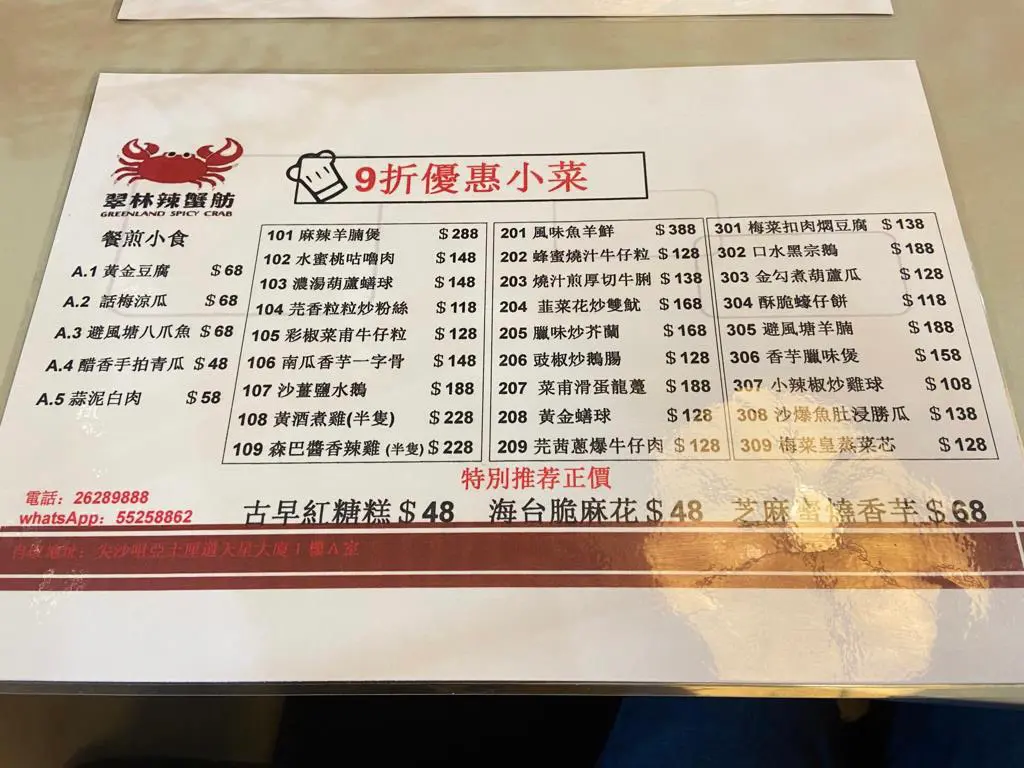 翠林辣蟹舫
GREENLAND SPICY CRAB
9折優惠小菜
餐煎小食
A.1 黃金豆腐 $68
A.2 話梅涼瓜 $68
A.3 避風塘八爪魚 $68
A.4 醋香手拍青瓜 $48
A.5 蒜泥白肉 $58
101 麻辣羊腩煲 $288
102 水蜜桃咕嚕肉 $148
103 濃湯葫蘆蟮球 $148
104 芫香粒粒炒粉絲 $118
105 彩椒菜甫牛仔粒 $128
106 南瓜香芋一字骨 $148
107 沙薑鹽水鵝 $188
108 黃酒煮雞(半隻) $228
109 森巴醬香辣雞(半隻) $228
201 風味魚羊鮮 $388
202 蜂蜜燒汁牛仔粒 $128
203 燒汁煎厚切牛脷 $138
204 韮菜花炒雙魷 $168
205 臘味炒芥蘭 $168
206 豉椒炒鵝腸 $128
207 菜甫滑蛋龍躉 $188
208 黃金蟮球 $128
209 芫茜蔥爆牛仔肉 $128
301 梅菜扣肉焖豆腐 $138
302 口水黑宗鵝 $188
303 金勾煮葫蘆瓜 $128
304 酥脆蠔仔餅 $118
305 避風塘羊腩 $188
306 香芋臘味煲 $158
307 小辣椒炒雞球 $108
308 沙爆魚肚浸勝瓜 $138
309 梅菜皇蒸菜芯 $128
特別推荐正價
古早紅糖糕 $48 海台脆麻花 $48 芝麻蜜燒香芋 $68
電話：26289888
whatsApp：55258862
尖沙咀亞士厘道天星大廈1樓A室